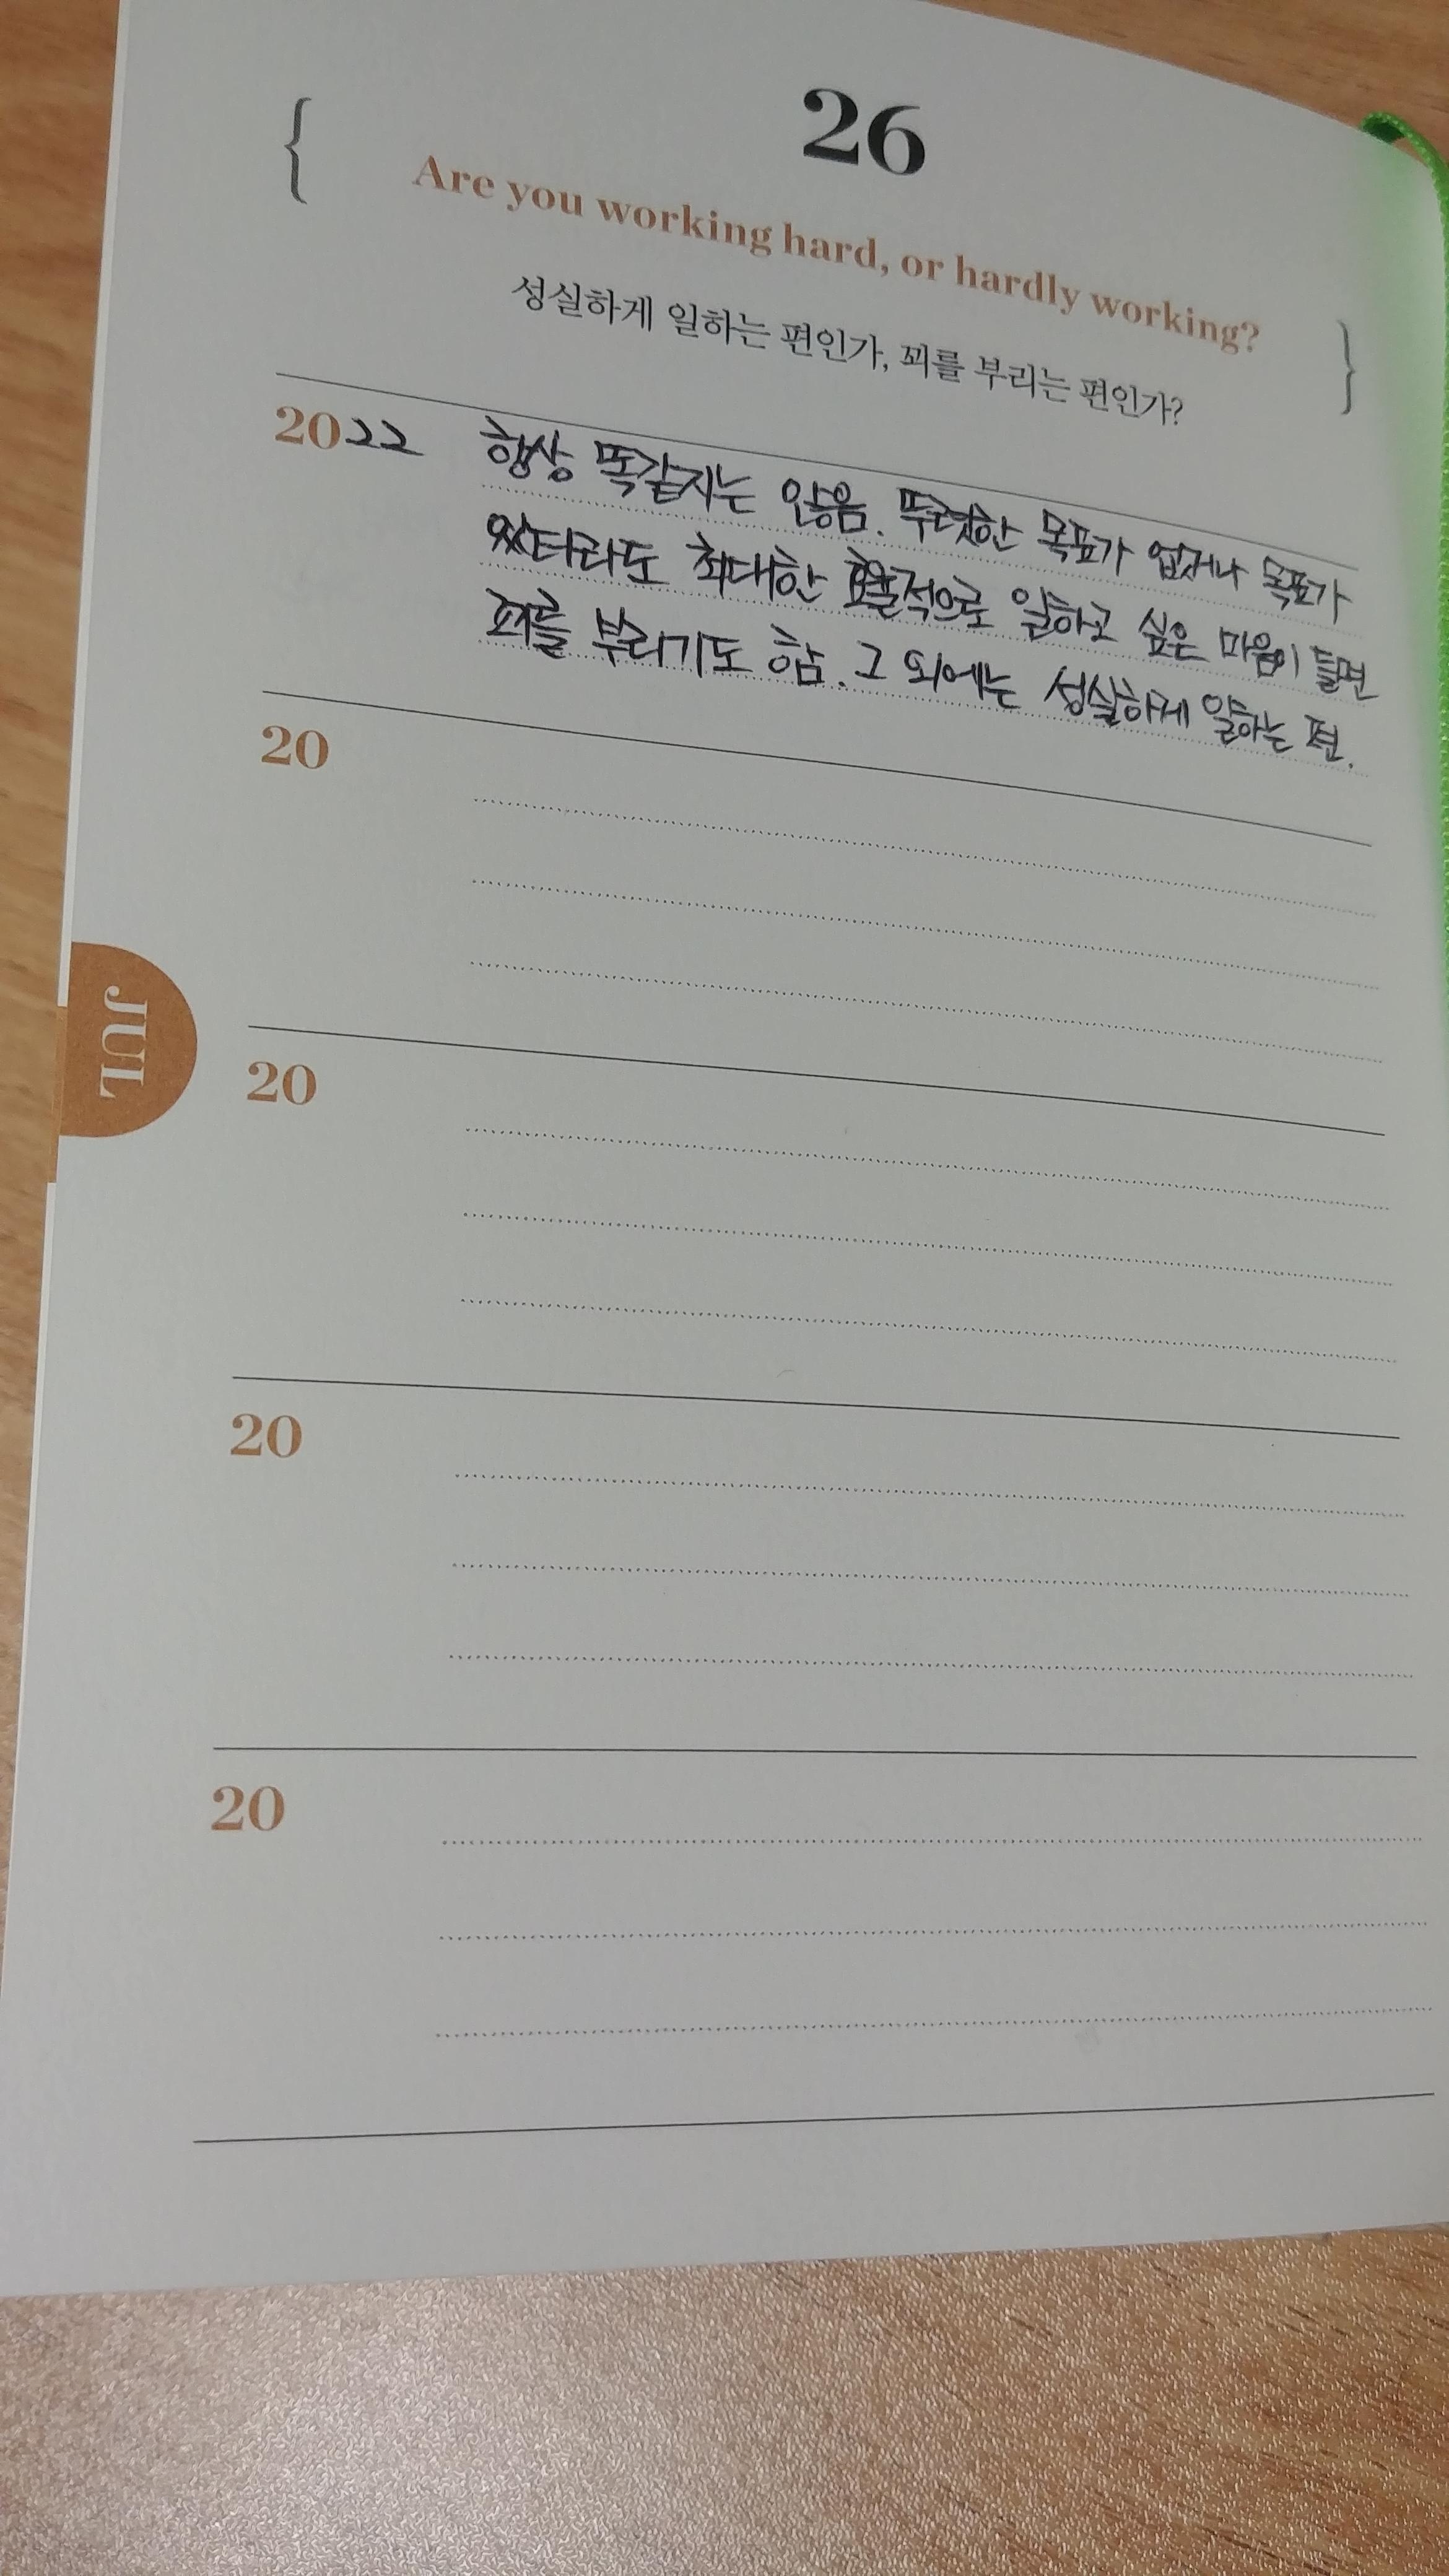 26
Are you working hard, or hardly working?
성실하게 일하는 편인가, 꾀를 부리는 편인가?
2022 항상 똑같지는 않음. 뚜렷한 목표가 없거나 목표가
있더라도 최대한 효율적으로 일하고 싶은 마음이 들면
꾀를 부리기도 함. 그 외에는 성실하게 일하는 편.
20
JUL
20
20
20